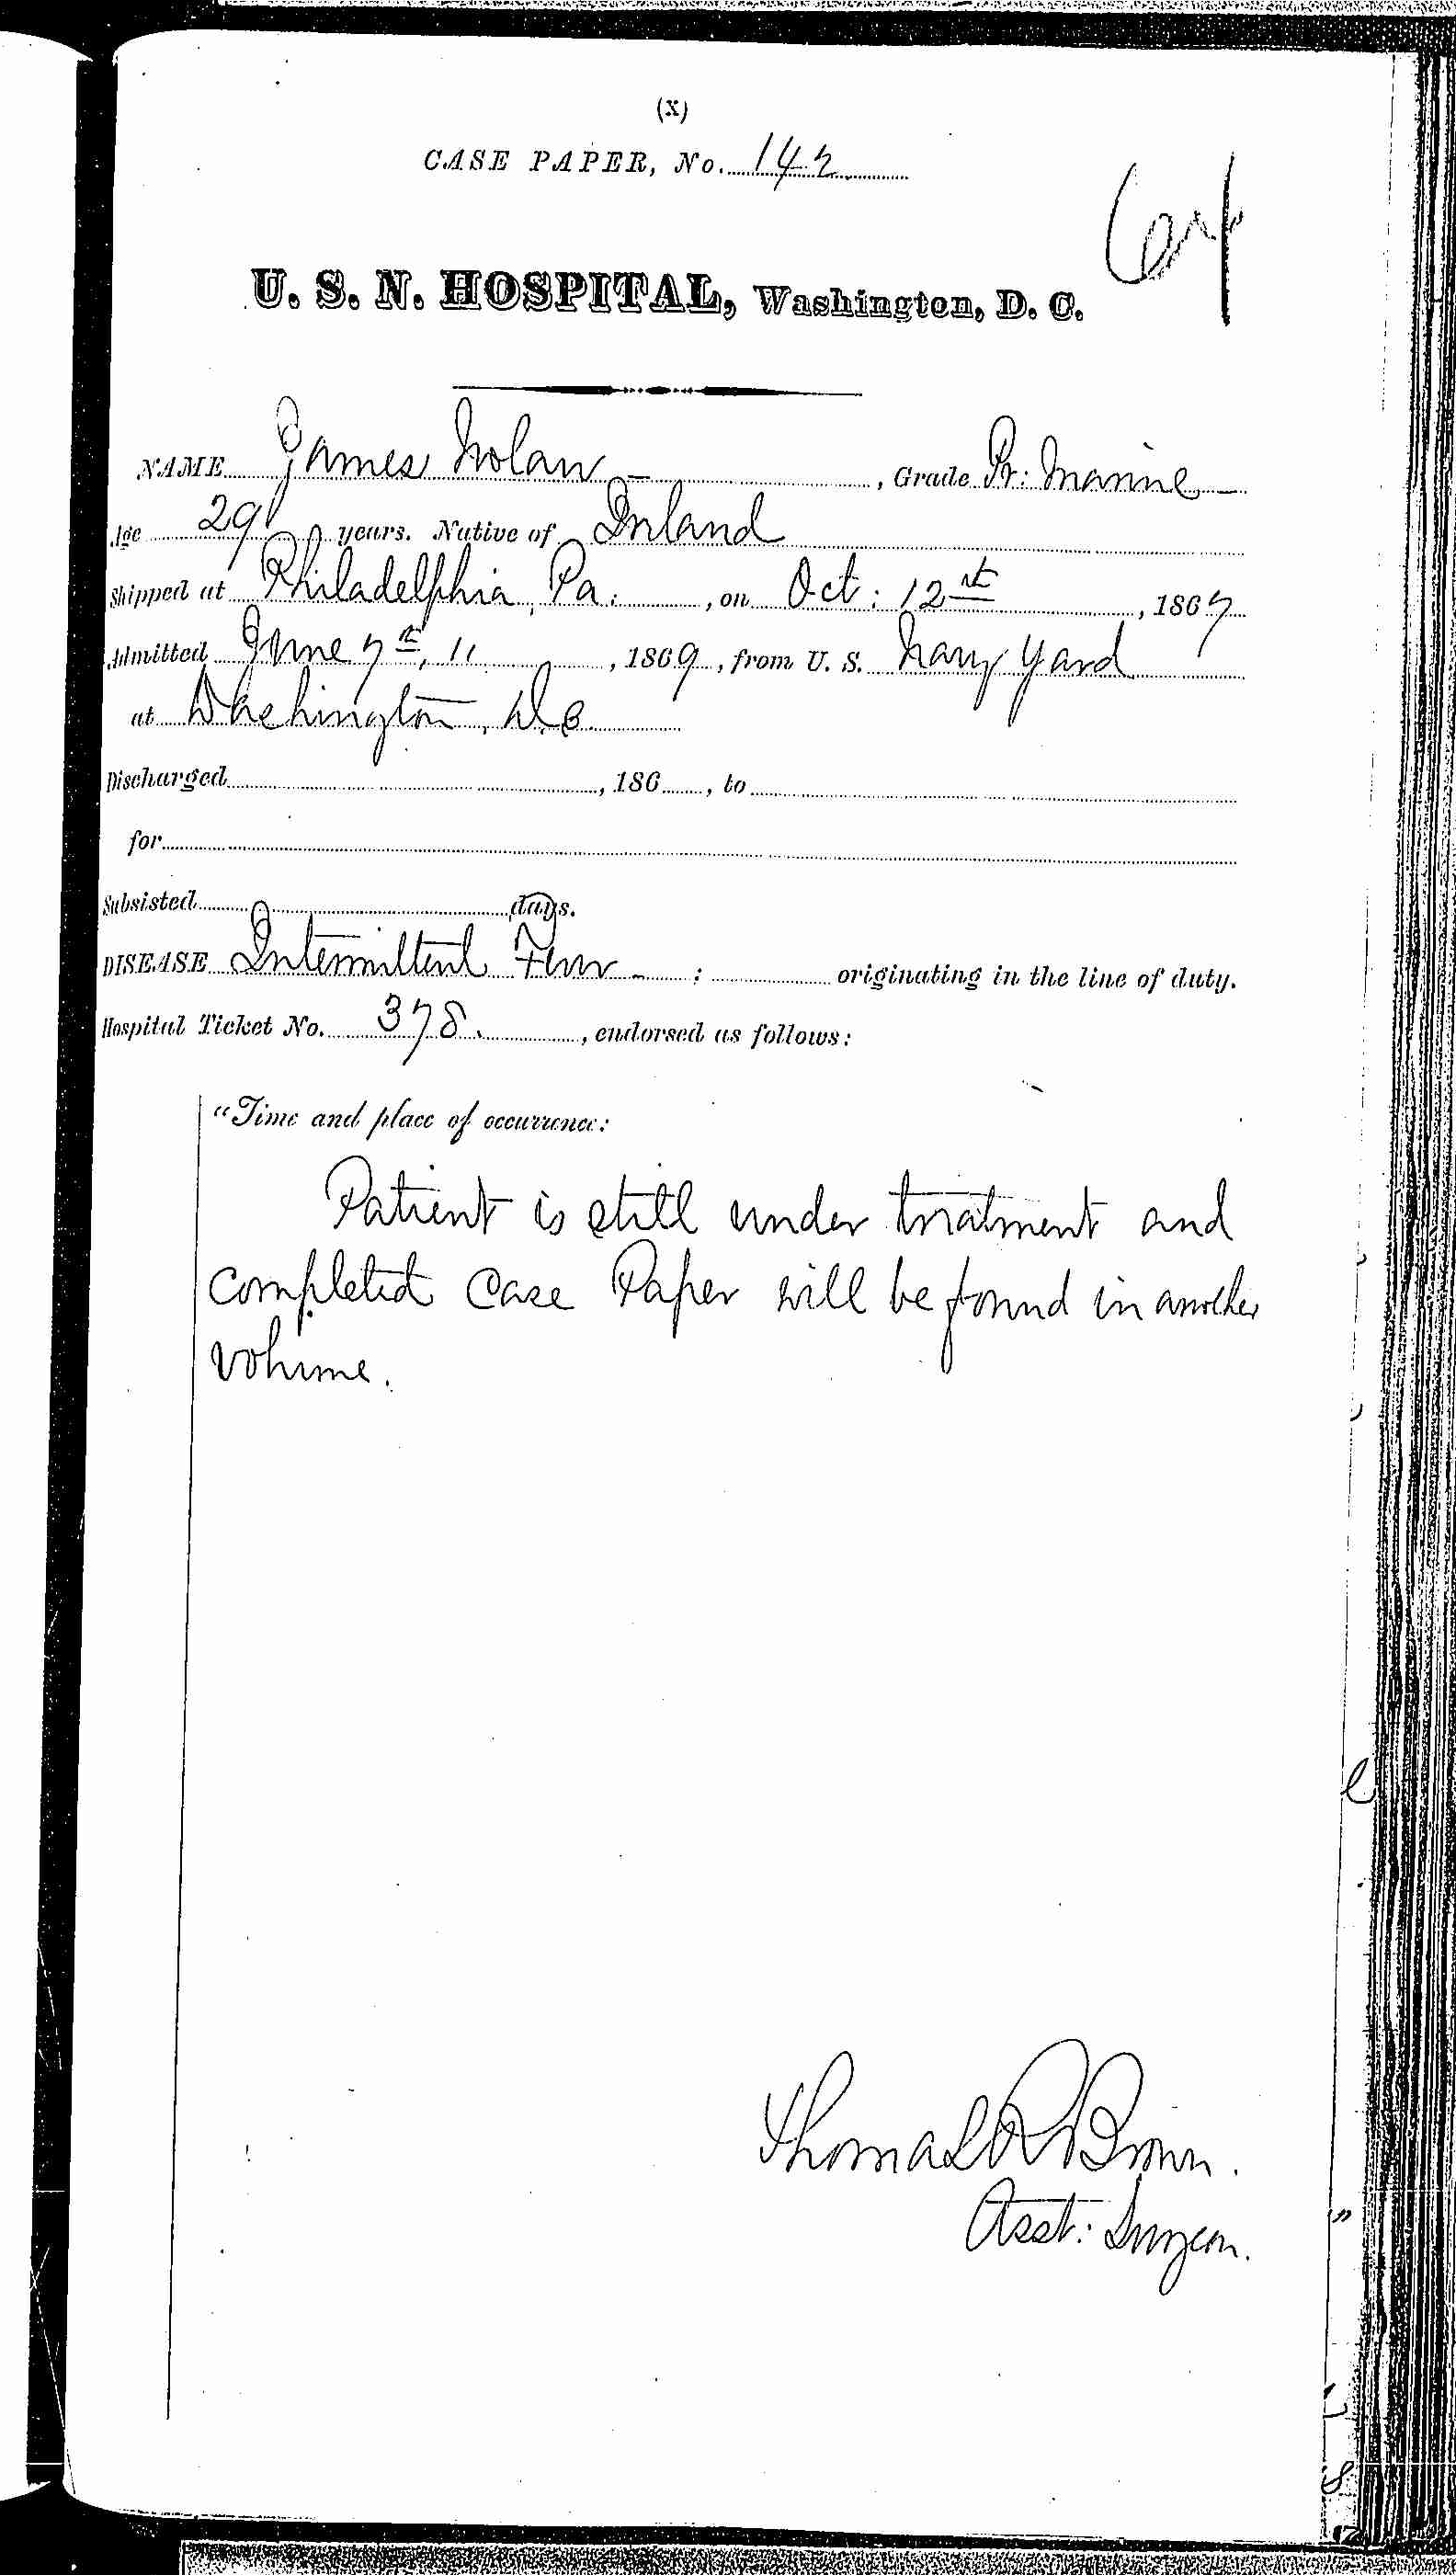 (X)
CASE PAPER, No. 142.
64
U. S. N. HOSPITAL, Washington, D. C.
NAME James Nolan – , Grade Pr: Marine –
Age 29 years. Native of Ireland
Shipped at Philadelphia, Pa. , on Oct: 12th , 1867
Admitted June 7th, 11 , 1869, from U. S. Navy Yard
at Washington, D.C.
Discharged , 186 , to
for
Subsisted days.
DISEASE Intermittent Fever – ; originating in the line of duty.
Hospital Ticket No. 378. , endorsed as follows:
"Time and place of occurrence:
Patient is still under treatment and
completed Case Paper will be found in another
volume.
Thomas R Brown.
Asst: Surgeon.